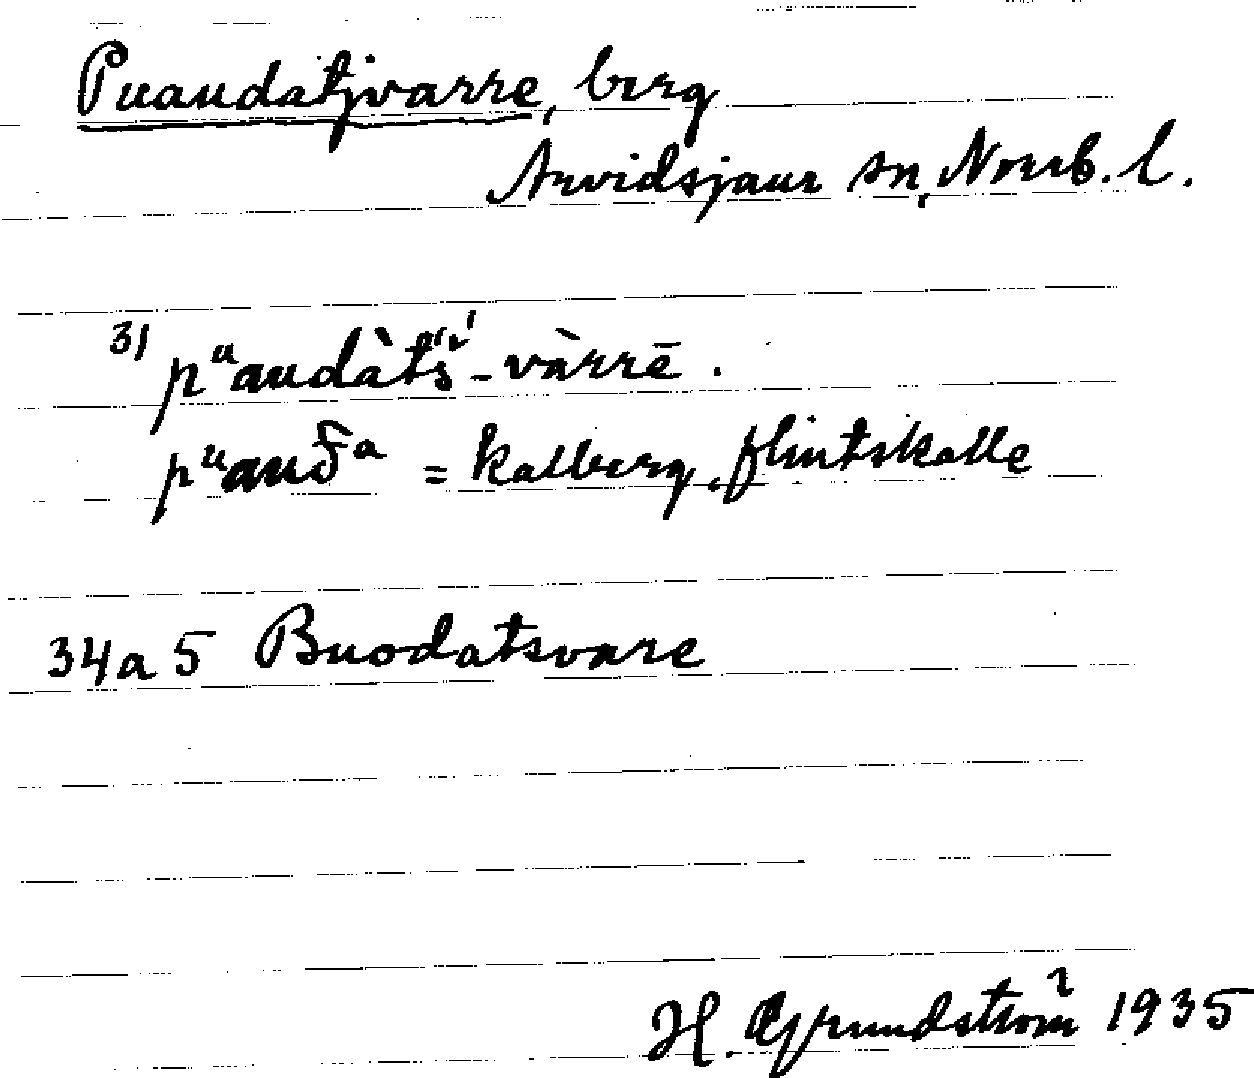 Puaudatjvarre, berg
Arvidsjaur sn, Norrb. l.
3) pᵘaudàtś-vàrrē.
pᵘauδᵃ = kalberg, flintskalle
34a5 Buodatsvare
H. Grundström 1935